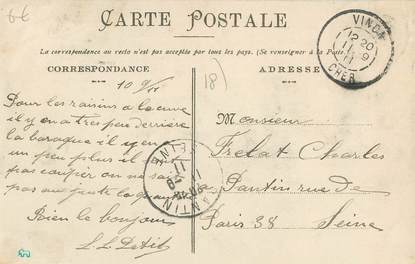 6€
CARTE POSTALE
La correspondance au recto n'est pas acceptée par tous les pays étrangers. (Se renseigner à la Poste).
CORRESPONDANCE
ADRESSE
18)
VINON
12 20
11 - 9
11
CHER
10 9/11
Pour les raisins a la cuve
il y en a tres peu derriere
la baraque il y en
un peu plus il
pas couper on ne sai
pas au juste la
Bien le bonjour
Monsieur
Frelat Charles
Pantin rue de
Paris 38 Seine
PANTIN
SEINE